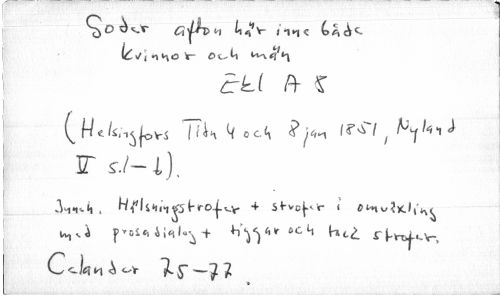 Goder afton här inne både
kvinnor och män
Ekl A 8
(Helsingfors Tidn 4 och 8 jan 1851, Nyland
V s.1-6).
Inneh. Hälsningstrofer + strofer i omväxling
med prosadialog + tiggar och tack strofer.
Celander 75-77.